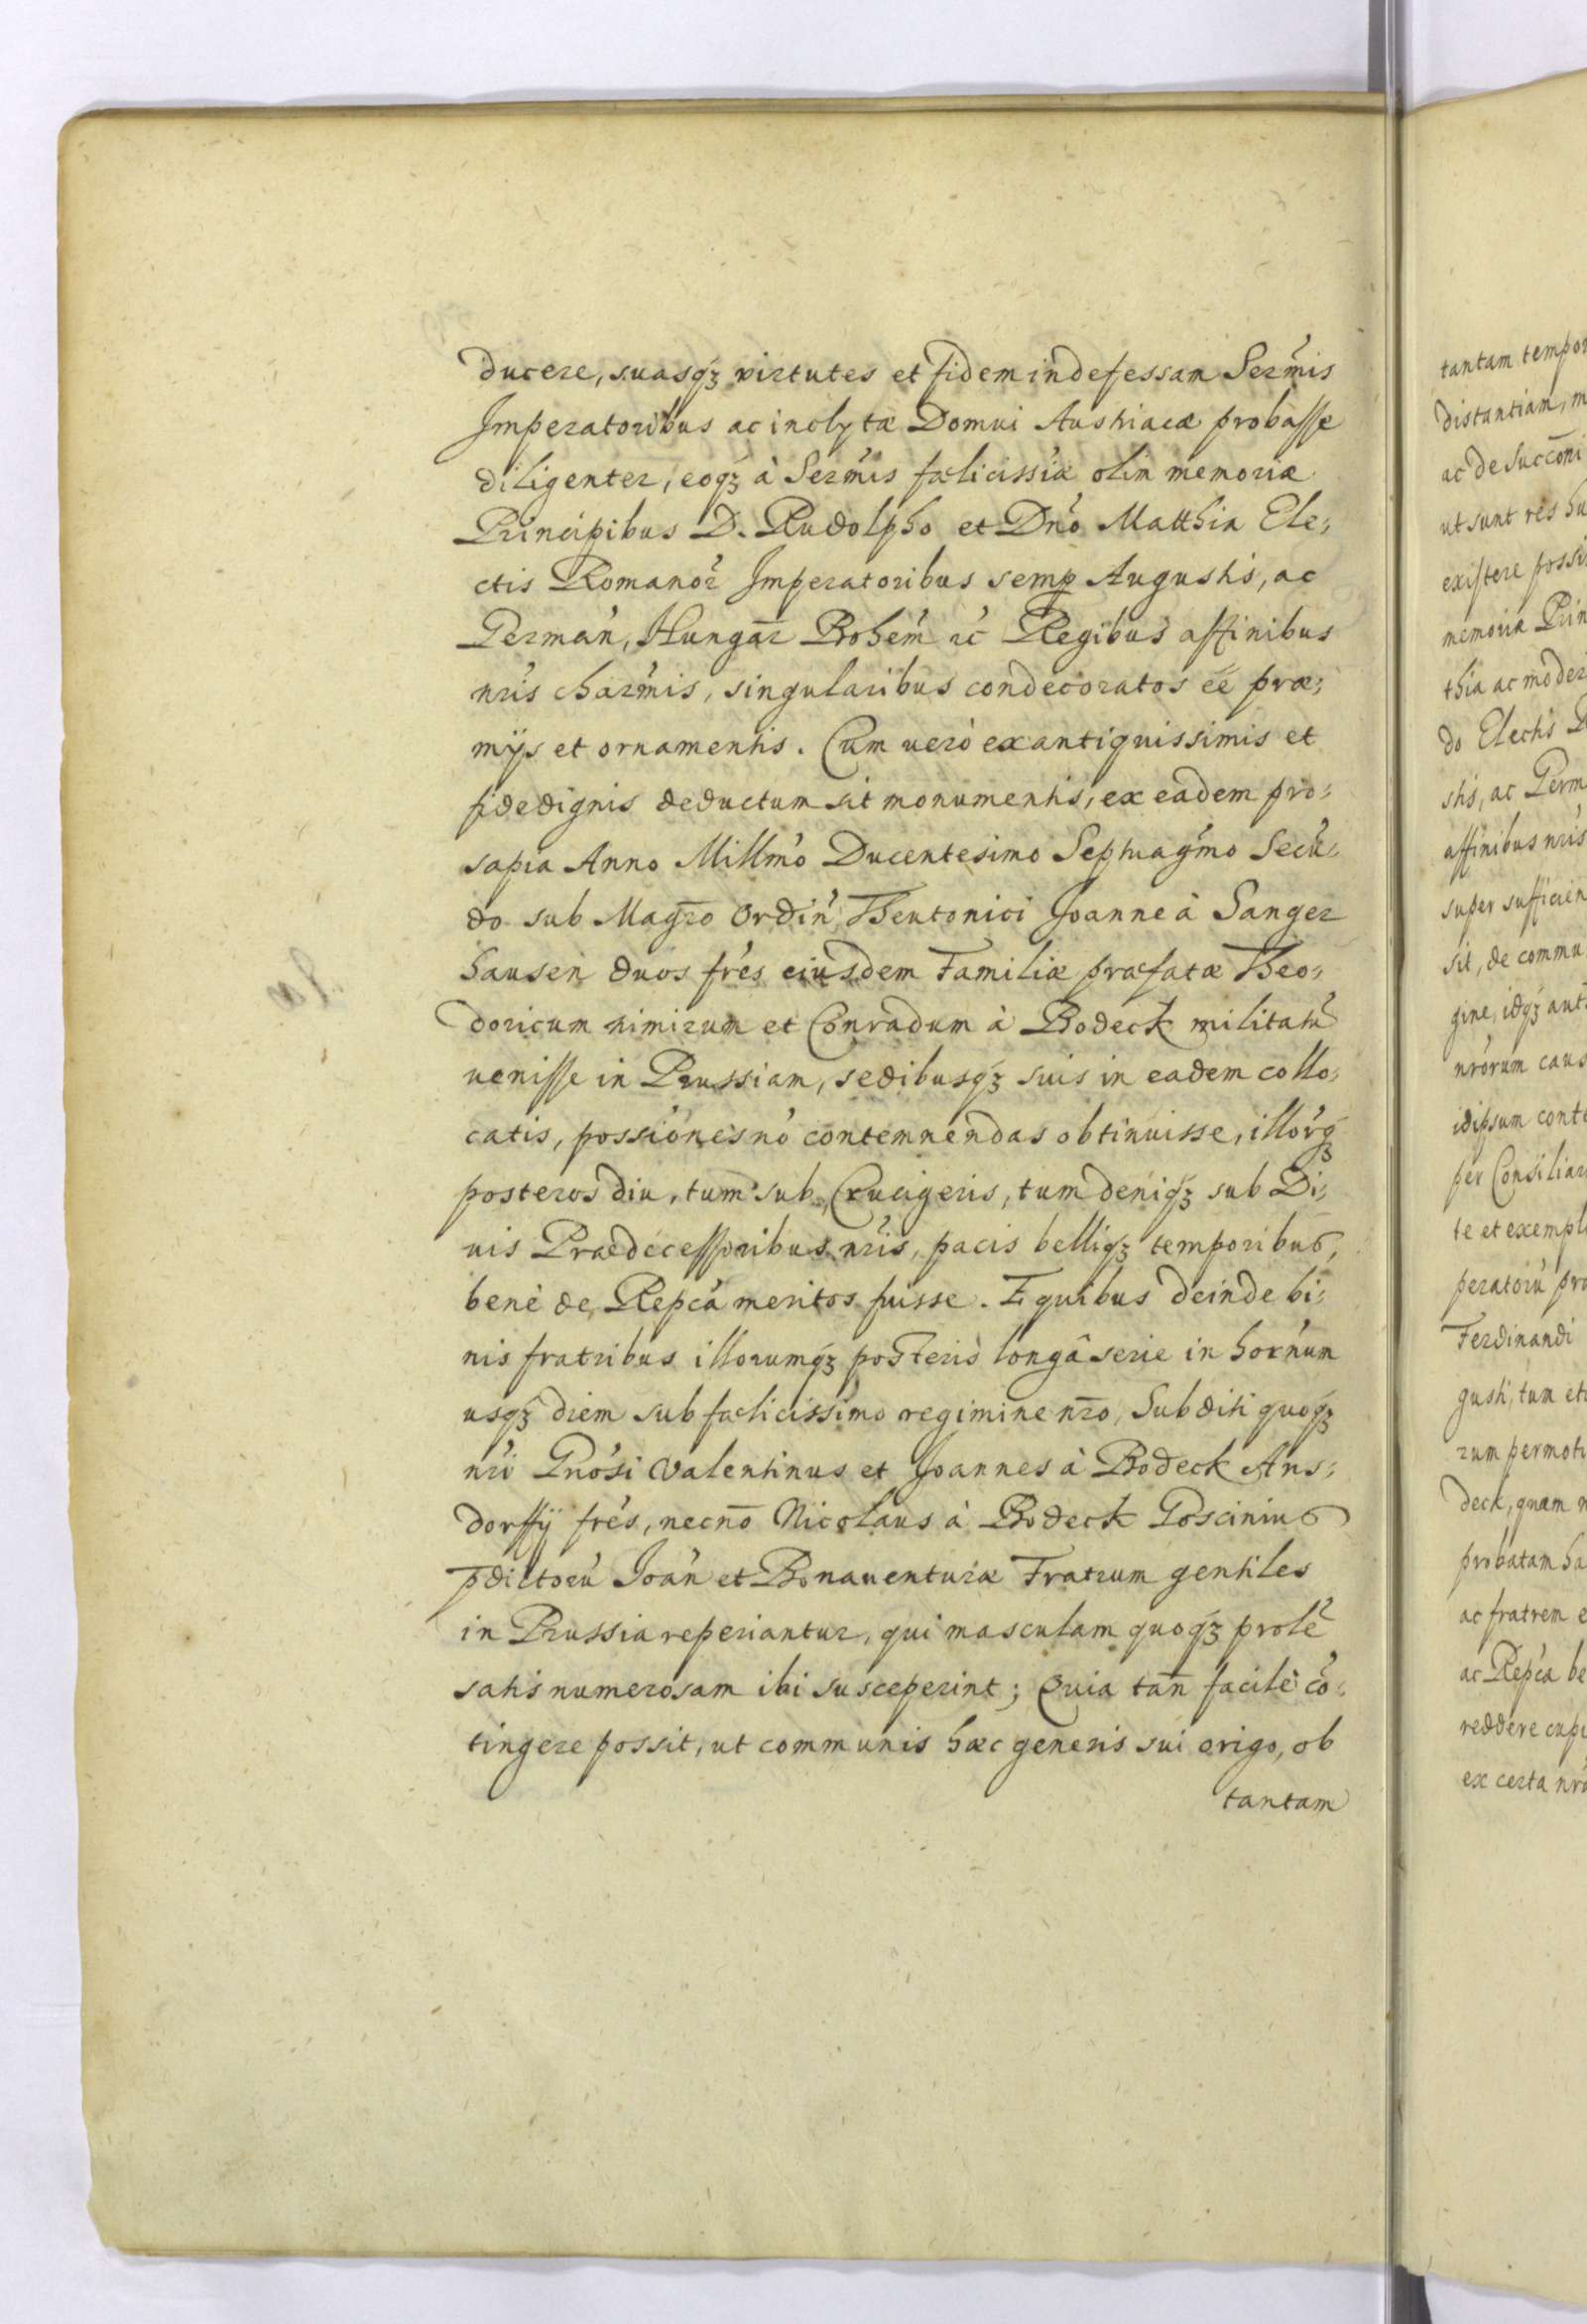 ducere, suasqꝫ virtutes et fidem indefessam Serm̃is
Imperatoribus ac inclytæ Domui Austriacæ probasse
diligenter, eoqꝫ à Serm̃is fælicissĩæ olim memoriæ
Principibus D. Rudolpho et Dño Matthia Ele-
ctis Romanoꝝ Imperatoribus semꝑ Augustis, ac
Germañ, Hungar̃ Bohem̃ ꝛc̃ Regibus affinibus
nr̃is char̃mis, singularibus condecoratos eẽ præ-
mijs et ornamentis. Cum verò ex antiquissimis et
fide dignis deductum sit monumentis, ex eadem pro-
sapia Anno Millm̃o Ducentesimo Septuagm̃o Secũ-
do sub Magr̃o Ordiñ Theutonici Joanne à Sanger
hausen duos fr̃es eiusdem Familiæ præfatæ Theo-
doricum nimirum et Conradum à Bodeck militatũ
venisse in Prussiam, sedibusqꝫ suis in eadem collo-
catis, possiõnes nõ contemnendas obtinuisse, illor̃qꝫ
posteros diu, tum sub Crucigeris, tum deniqꝫ sub Di-
uis Prædecessoribus nr̃is, pacis belliqꝫ temporibus,
benè de Repcã meritos fuisse. E quibus deinde bi-
nis fratribus illorumqꝫ posteris longâ serie in hor̃num
usqꝫ diem sub fælicissimo regimine nr̃o, Subditi quoqꝫ
nr̃i Gnõsi Valentinus et Joannes à Bodeck Ans-
dorffÿ fr̃es, necnõ Nicolaus à Bodeck Goscinius
p̃dictorũ Joañ et Bonauenturæ Fratrum gentiles
in Prussia reperiantur, qui masculam quoqꝫ prolẽ
satis numerosam ibi susceperint; Quia tañ facilè cõ-
tingere possit, ut communis hæc generis sui origo, ob
tantam
tantam tempor
distantiam, m
ac de Succõni
ut sunt res hu
existere possi
memoria Prin
thia ac moder
do Electis
stis, ac Germ
affinibus nr̃is
super sufficien
sit, de commu
gine, idqꝫ aut
nr̃orum caus
idipsum cont
per Consiliar
te et exempl
peratorũ pro
Ferdinandi
gusti, tum et
rum permoti
deck, quam
probatam ha
ac fratrem e
ac Repcã be
reddere cupi
ex certa nr̃a